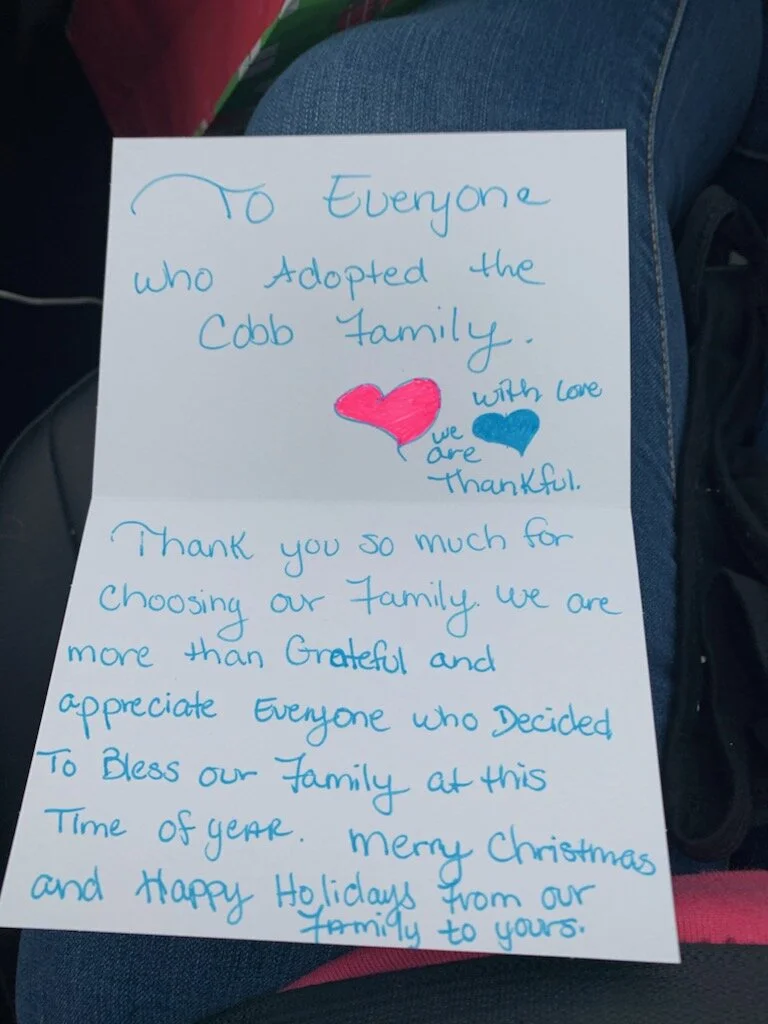 To Everyone
who Adopted the
Cobb Family.
with love
we
are
Thankful.
Thank you so much for
choosing our Family. We are
more than Grateful and
appreciate Everyone who Decided
To Bless our Family at this
Time of yEAR. Merry Christmas
and Happy Holidays from our
Family to yours.